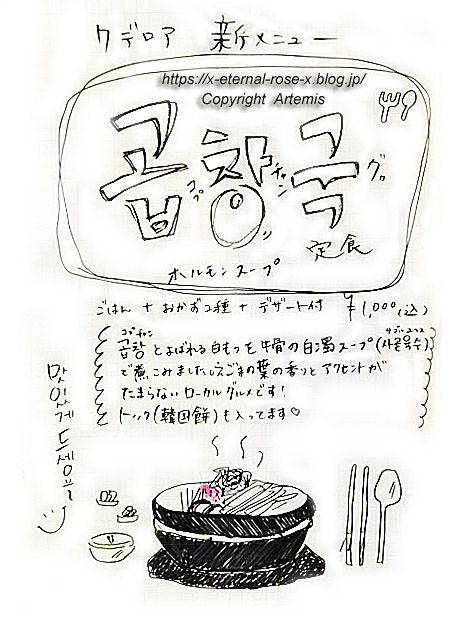 クデロア 新メニュー
https://x-eternal-rose-x.blog.jp/
Copyright Artemis
곱창국
コプチャングッ
定食
ホルモンスープ
ごはん + おかず2種 + デザート付 ¥1,000(込)
コプチャン
곱창とよばれる白もつを牛骨の白濁スープ(사골육수)
で煮こみました。えごまの葉の香りとアクセントが
たまらないローカルグルメです!
トック(韓国餅)も入ってます♡
맛있게 드세요